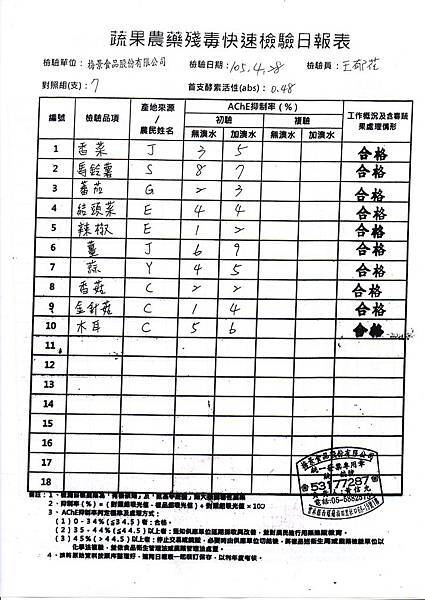 蔬果農藥殘毒快速檢驗日報表
檢驗單位：梅景食品股份有限公司 檢驗日期：105.4.28 檢驗員：王郁荏
對照組(支)：7 首支酵素活性(abs)：0.48
編號 檢驗品項 產地來源/農民姓名 AChE抑制率(％) 工作概況及含毒蔬果處理情形
初驗 複驗
無溴水 加溴水 無溴水 加溴水
1 香菜 J 3 5 合格
2 馬鈴薯 S 8 7 合格
3 蕃茄 G 2 3 合格
4 結頭菜 E 4 4 合格
5 辣椒 E 1 2 合格
6 薑 J 6 9 合格
7 蒜 Y 4 5 合格
8 香菇 C 2 2 合格
9 金針菇 C 1 4 合格
10 木耳 C 5 6 合格
11
12
13
14
15
16
17
18
食品股份有限公司
統一發票專用章
53177287
2、抑制率(％)＝(對照組吸光值－樣品組吸光值)÷對照組吸光值×100
3、AChE抑制率判定標準及處理方式：
(1) 0－34％(≦34.5)者：合格。
(2) 35－44％(≦44.5)以上者：
(3) 45％(＞44.5)以上者：